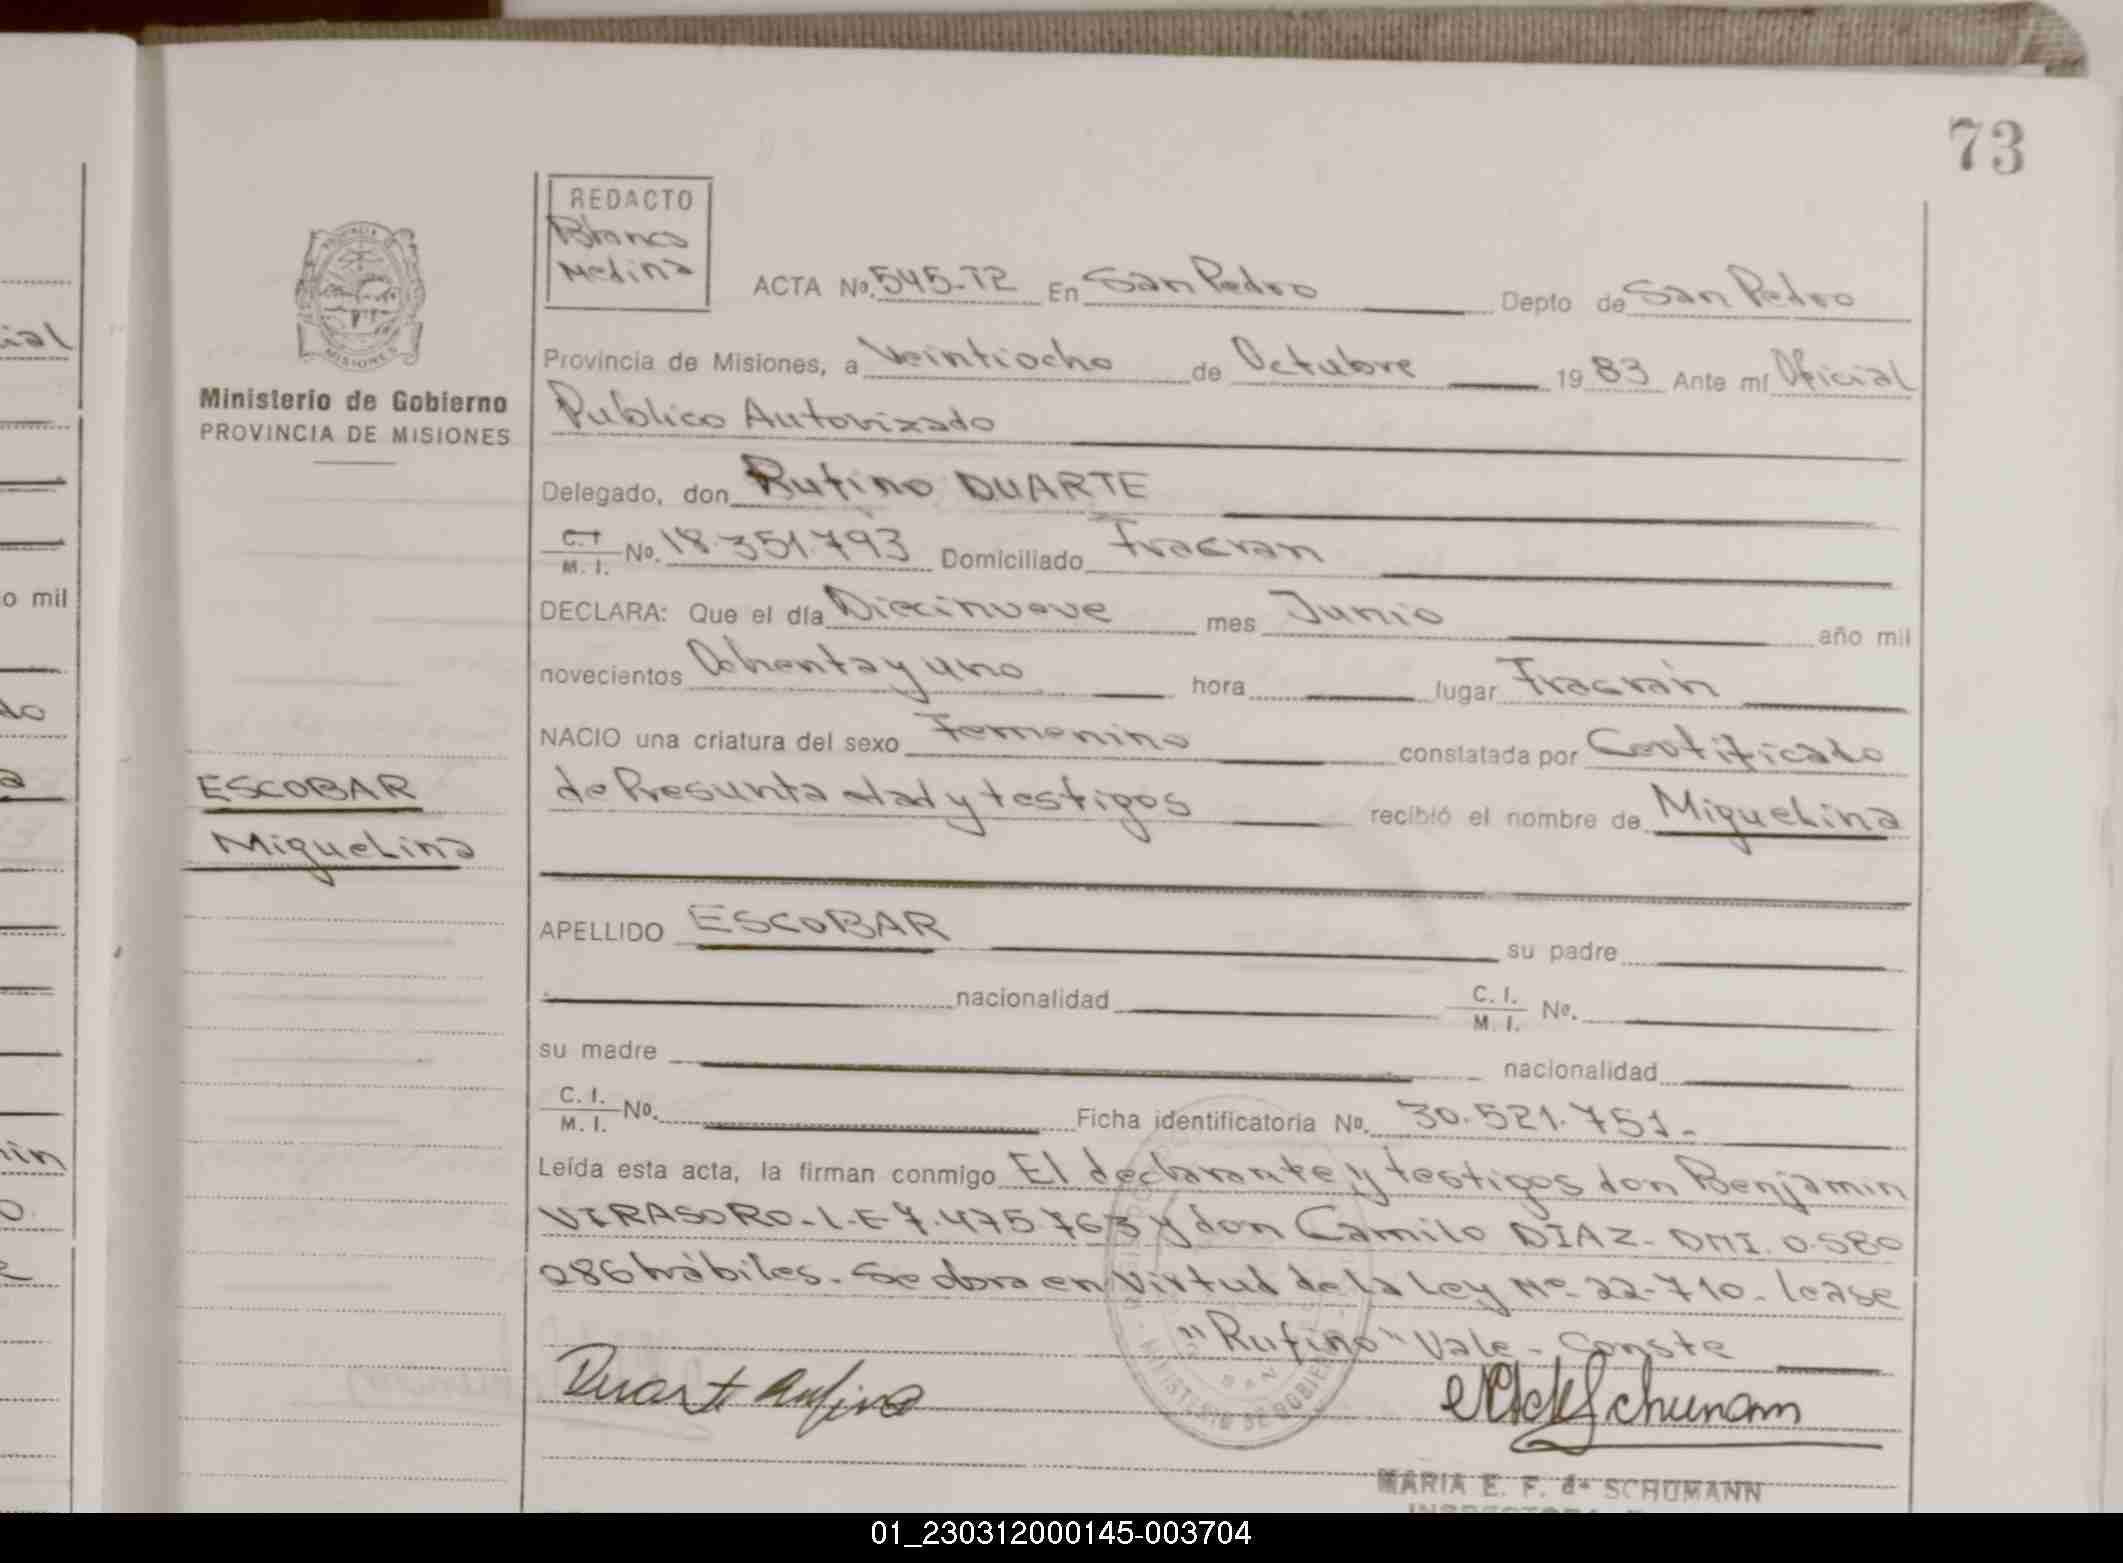 73
REDACTO
Blanco
Medina
ACTA No. 545-T2 En San Pedro Depto de San Pedro
Provincia de Misiones, a Veintiocho de Octubre 19 83 Ante mí Oficial
Publico Autorizado
Delegado, don Rufino DUARTE
C. I. / M. I. No. 18.351.793 Domiciliado Fracran
DECLARA: Que el día Diecinueve mes Junio año mil
novecientos Ochenta y uno hora lugar Fracran
NACIO una criatura del sexo Femenino constatada por Certificado
de Presunta edad y testigos recibió el nombre de Miguelina
APELLIDO ESCOBAR su padre
nacionalidad C. I. / M. I. No.
su madre nacionalidad
C. I. / M. I. No. Ficha identificatoria No. 30.521.751.-
Leída esta acta, la firman conmigo El declarante y testigos don Benjamin
VIRASORO-L.E 7.475.763 y don Camilo DIAZ- DNI. 0.580
286 hábiles.- Se labra en Virtud de la Ley Nº 22-710- lease
"Rufino" Vale - Conste
Duart Rufino
Schumann
MARIA E. F. de SCHUMANN
PROVINCIA
MISIONES
Ministerio de Gobierno
PROVINCIA DE MISIONES
ESCOBAR
Miguelina
MINISTERIO DE GOBIERNO
ial
o mil
do
a
min
o.
01_230312000145-003704